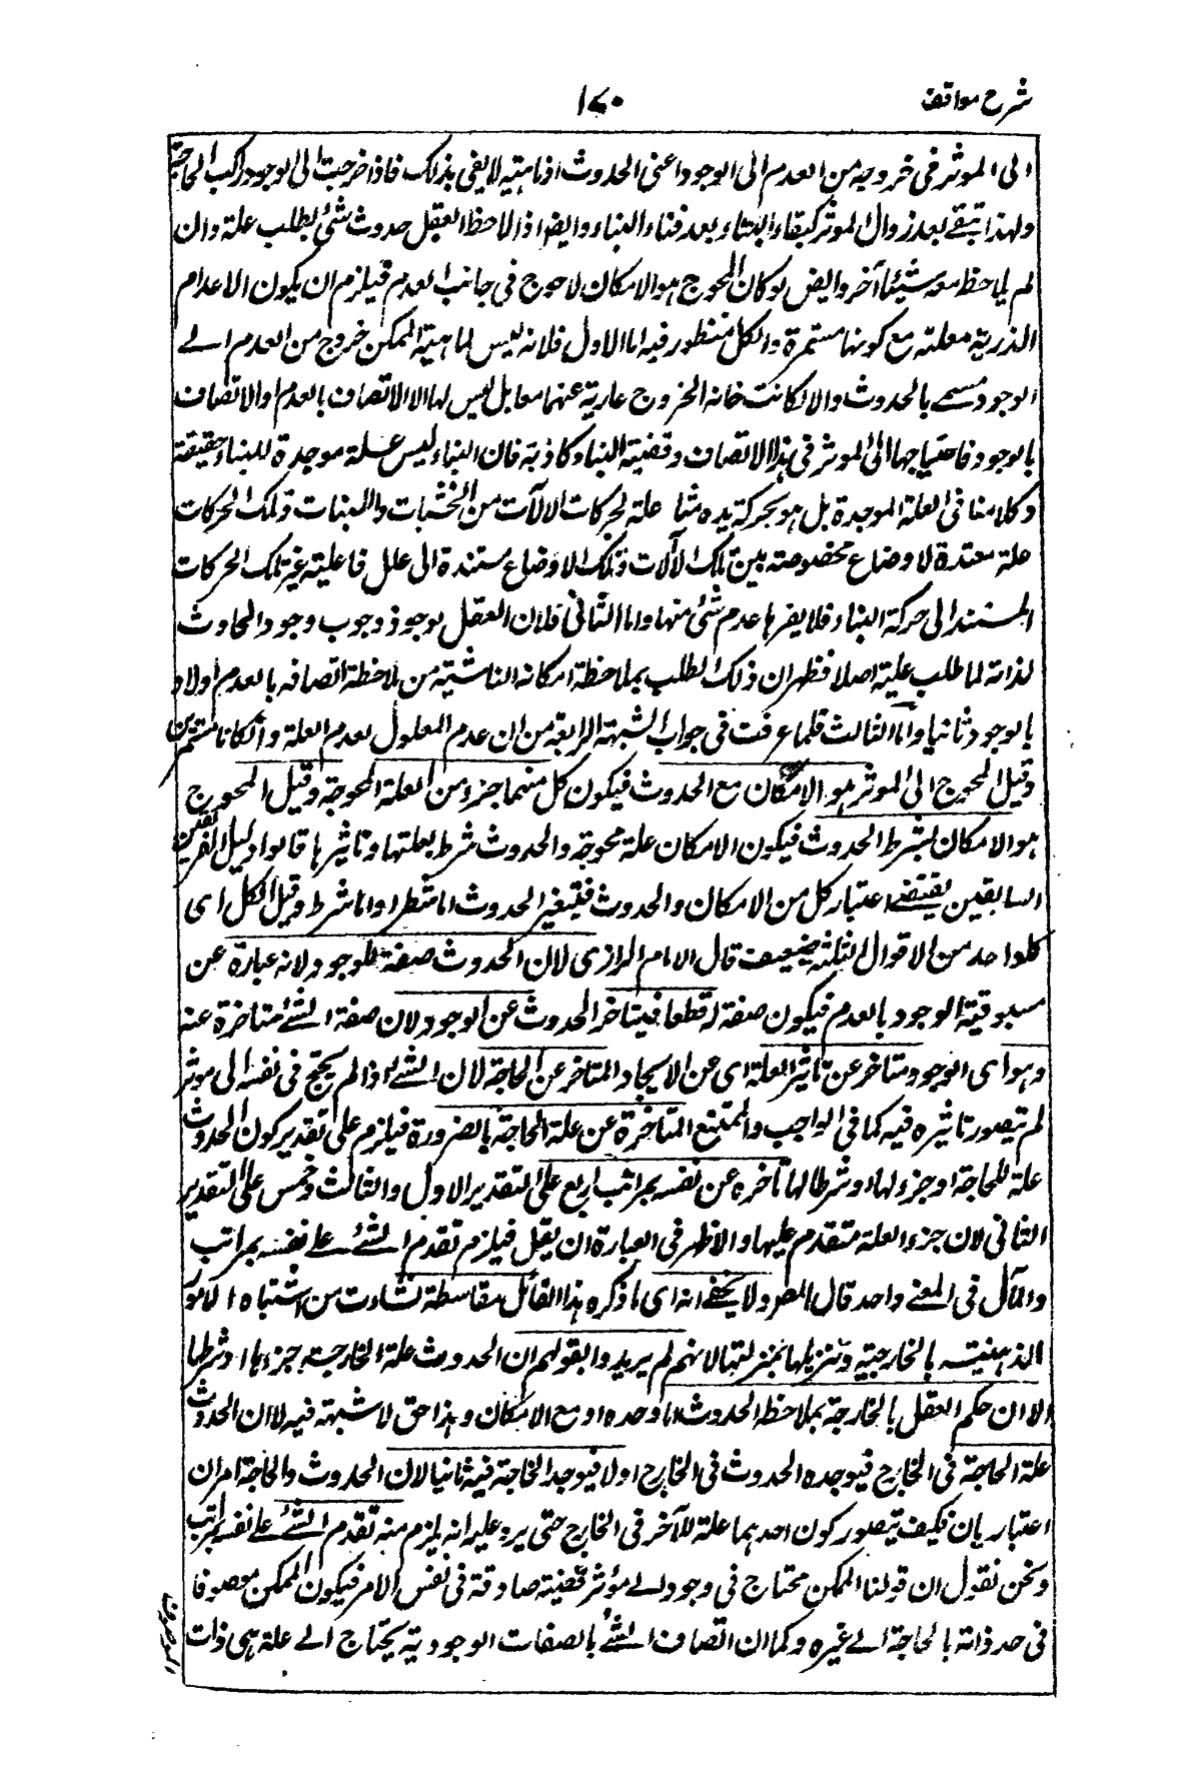 شرح مواقف
١٧٠
الى الموثر فى خروجه من العدم الى الوجود اعنى الحدوث اذ ماهيته لا يفى بذلك فاذا خرجت الى الوجود زالت الحاجة
ولهذا تبقى بعد زوال الموثر كبقاء البناء بعد فناء البناء وايضا اذا لاحظ العقل حدوث شئ طلب علة وان
لم يلاحظ معه شيئا آخر وايض لو كان المحوج هو الامكان لاحوج فى جانب العدم فيلزم ان يكون الاعدام
الذرية معللة مع كونها مستمرة والكل منظور فيه اما الاول فلانه ليس لماهية الممكن خروج من العدم الى
الوجود مسمى بالحدوث والا لكانت حالة الخروج عارية عنهما معا بل ليس لها الا الاتصاف بالعدم او الاتصاف
بالوجود فاحتياجها الى الموثر فى هذا الاتصاف وقضية البناء كاذبة فان البناء ليس علة موجدة للبناء حقيقة
وكلامنا فى العلة الموجدة بل هو بحركة يده مثلا علة لحركات الآلات من الخشبات واللبنات وتلك الحركات
علة معدة لاوضاع مخصوصة بين تلك الآلات وتلك الاوضاع مستندة الى علل فاعلية غير تلك الحركات
المستند الى حركة البناء فلا يضرها عدم شئ منها واما الثانى فلان العقل لو جوز وجوب وجود الحادث
لذاته لما طلب علته اصلا فظهر ان ذلك الطلب بملاحظة امكانه الناشية من ملاحظة اتصافه بالعدم اولا و
بالوجود ثانيا واما الثالث فلما عرفت فى جواب الشبهة الرابعة من ان عدم المعلول لعدم العلة وان كانا مستمرين
وقيل المحوج الى الموثر هو الامكان مع الحدوث فيكون كل منهما جزء من العلة المحوجة وقيل المحوج
هو الامكان بشرط الحدوث فيكون الامكان علة محوجة والحدوث شرط بعلتها وتاثيرها قالوا دليل الفريقين
السابقين يقتضى اعتبار كل من الامكان والحدوث فيعتبر الحدوث اما شطرا واما شرطا وقيل الكل اى
كل واحد من الاقوال الثلثة ضعيف قال الامام الرازى لان الحدوث صفة للوجود لانه عبارة عن
مسبوقية الوجود بالعدم فيكون صفة له قطعا فيتاخر الحدوث عن الوجود لان صفة الشئ متاخرة عنه
وهو اى الوجود متاخر عن تاثير العلة اى عن الايجاد المتاخر عن الحاجة لان الشئ اذا لم يحتج فى نفسه الى موثر
لم يتصور تاثيره فيه كما فى الواجب والممتنع المتاخرة عن علة الحاجة بالضرورة فيلزم على تقدير كون الحدوث
علة للحاجة او جزء لها او شرطا لها تاخره عن نفسه بمراتب اربع على التقدير الاول والثالث وخمس على التقدير
الثانى لان جزء العلة متقدم عليها والاظهر فى العبارة ان يقل فيلزم تقدم الشئ على نفسه بمراتب
والمآل فى المعنى واحد قال المصر ولا يخفى انه اى ما ذكره هذا القائل مغالطة نشات من اشتباه الامور
الذهنية بالخارجية وتنزيلها بمنزلتها لانهم لم يريدوا بقولهم ان الحدوث علة الخارجية جزءها او شرطها
الا ان حكم العقل بالخارجة بملاحظة الحدوث اما وحده او مع الامكان وهذا حق لا شبهة فيه لا ان الحدوث
علة الحاجة فى الخارج فيوجده الحدوث فى الخارج اولا فيوجد الحاجة فيه ثانيا لان الحدوث والحاجة امران
اعتباريان فكيف يتصور كون احدهما علة للآخر فى الخارج حتى يرد عليه انه يلزم منه تقدم الشئ على نفسه بمراتب
ونحن نقول ان قولنا الممكن محتاج فى وجوده الى مؤثر قضية صادقة فى نفس الامر فيكون الممكن موصوفا
فى حد ذاته بالحاجة الى غيره وكما ان اتصاف الشئ بالصفات الوجودية يحتاج الى علة هى ذات
الموصوف